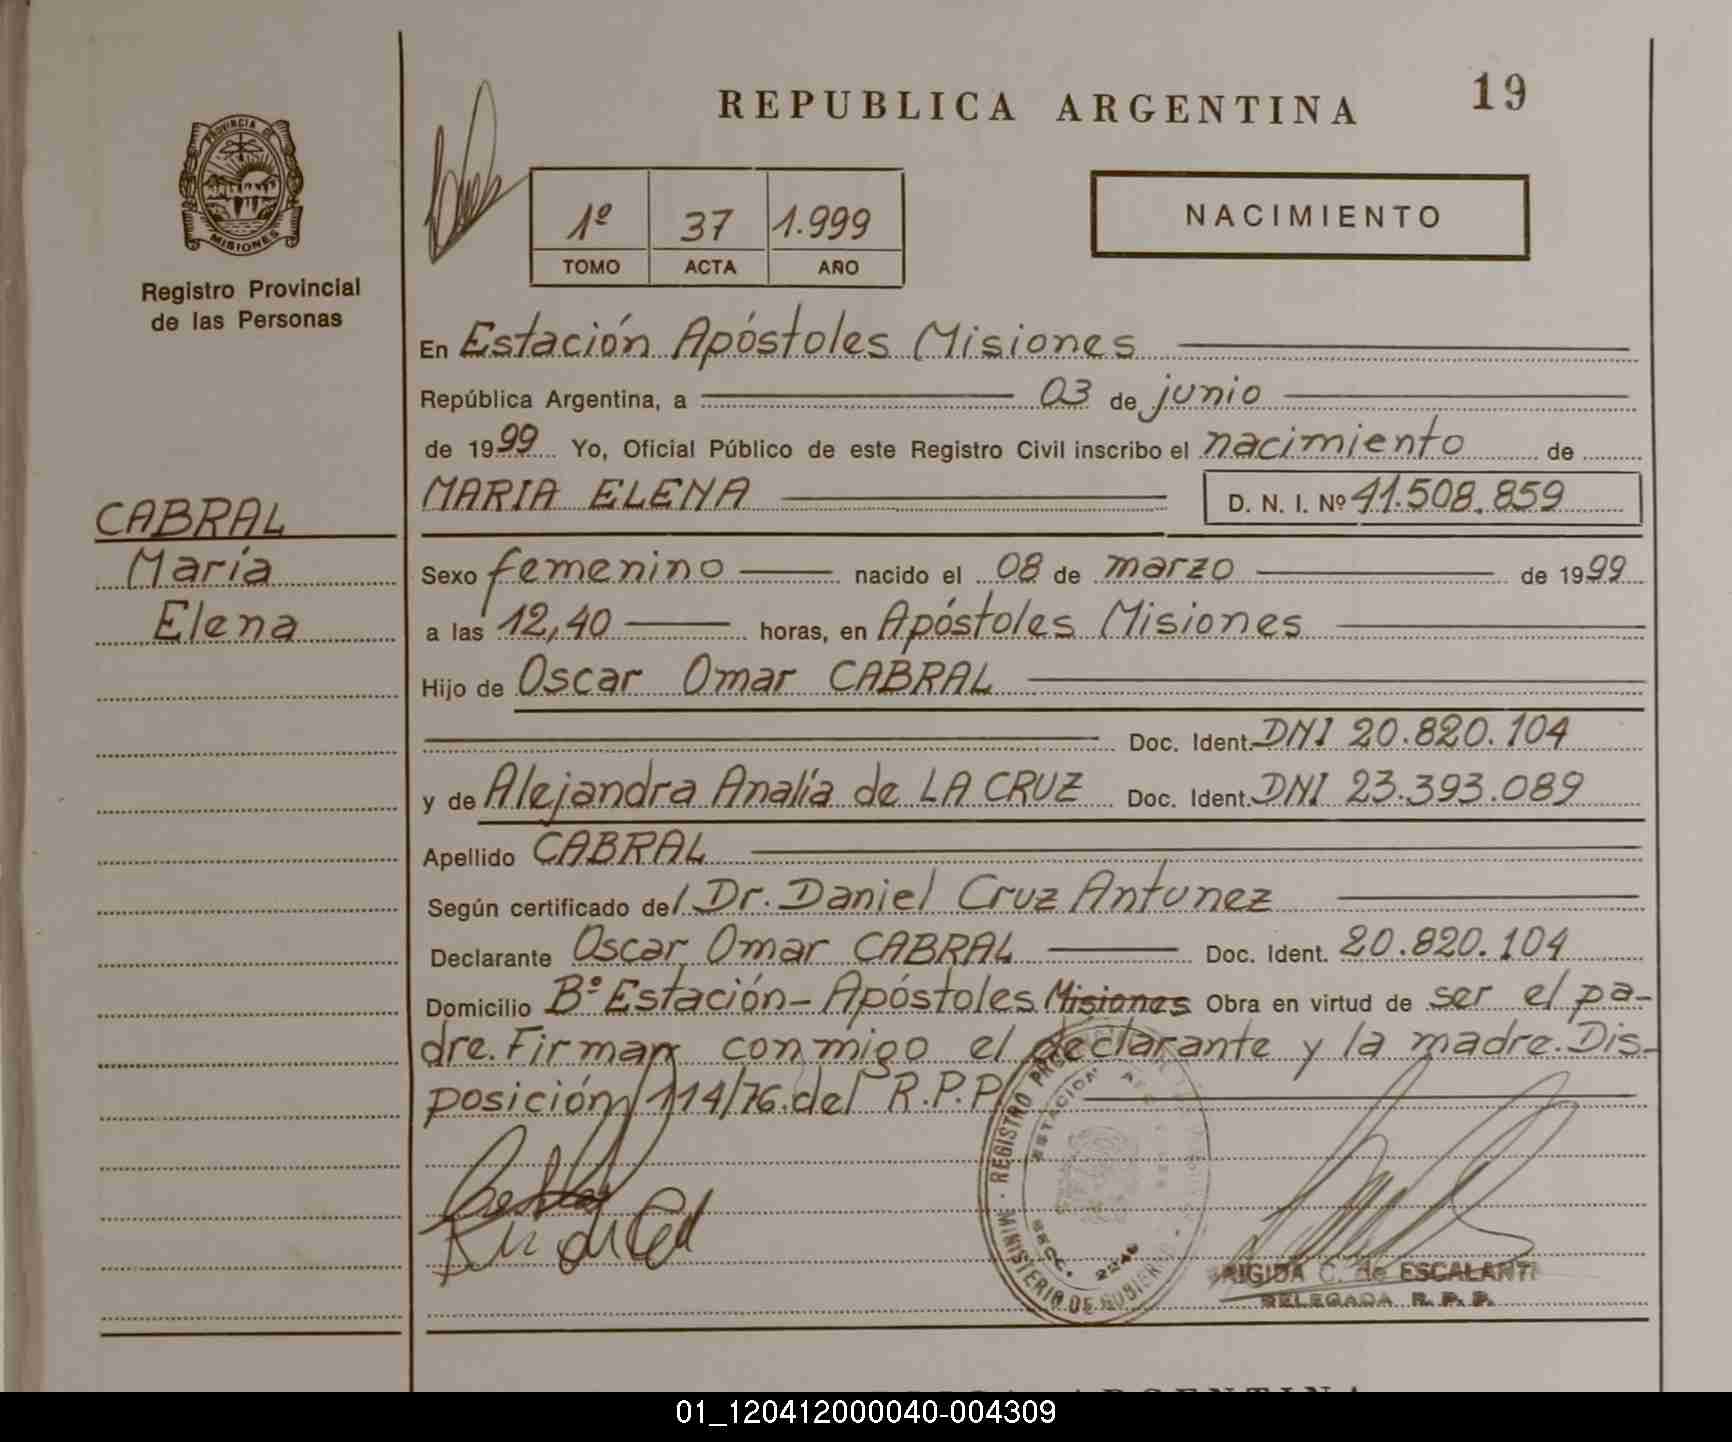 REPUBLICA ARGENTINA 19
PROVINCIA DE
MISIONES
Registro Provincial
de las Personas
1º 37 1.999
TOMO ACTA AÑO
NACIMIENTO
En Estación Apóstoles Misiones
República Argentina, a 03 de junio
de 1999 Yo, Oficial Público de este Registro Civil inscribo el nacimiento de
MARIA ELENA D. N. I. Nº 41.508.859
CABRAL
María
Elena
Sexo femenino nacido el 08 de marzo de 1999
a las 12,40 horas, en Apóstoles Misiones
Hijo de Oscar Omar CABRAL
Doc. Ident. DNI 20.820.104
y de Alejandra Analía de LA CRUZ Doc. Ident. DNI 23.393.089
Apellido CABRAL
Según certificado del Dr. Daniel Cruz Antunez
Declarante Oscar Omar CABRAL Doc. Ident. 20.820.104
Domicilio Bº Estación - Apóstoles Misiones Obra en virtud de ser el pa-
dre. Firman conmigo el declarante y la madre. Dis-
posición 114/76 del R.P.P.
REGISTRO
ESTACION
SECC. 2240
MINISTERIO DE GOBIERNO
BRIGIDA C. de ESCALANTE
DELEGADA R. P. P.
01_120412000040-004309